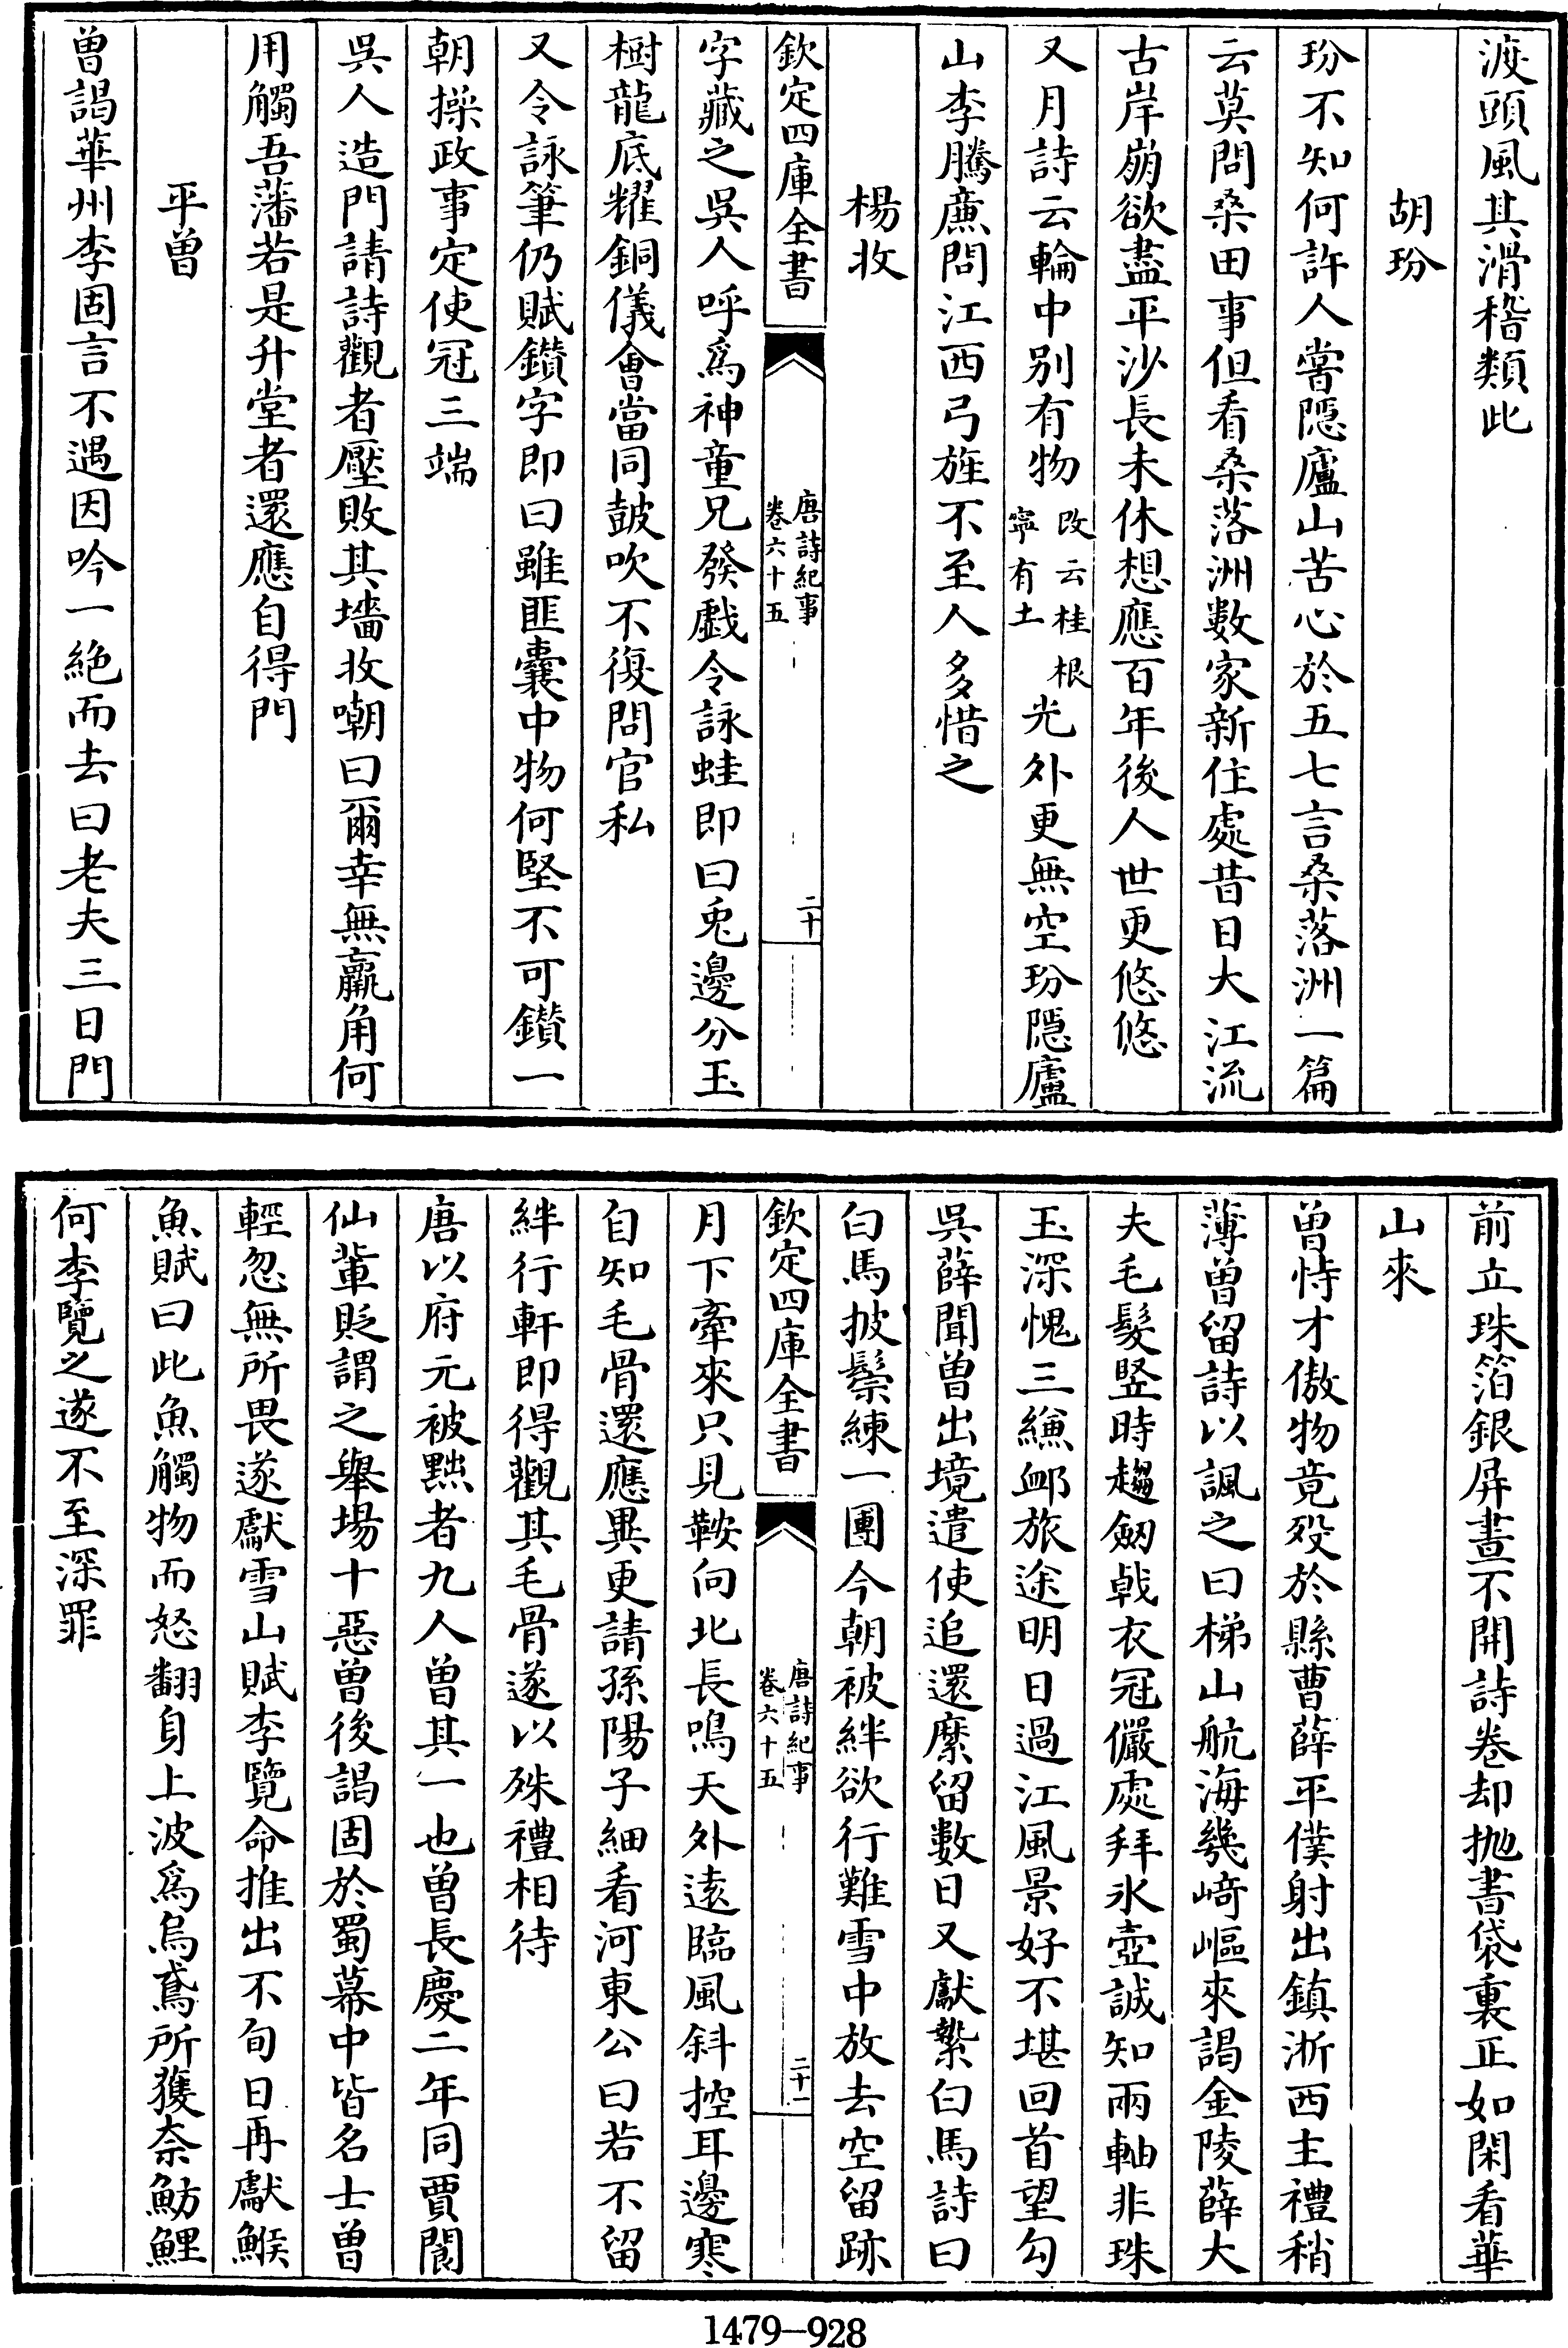 渡頭風其滑稽類此
胡玢
玢不知何許人嘗隱廬山苦心於五七言桑落洲一篇
云莫問桑田事但看桑落洲數家新住處昔日大江流
古岸崩欲盡平沙長未休想應百年後人世更悠悠
又月詩云輪中別有物改云桂根寧有土光外更無空玢隱廬
山李騰廉問江西弓旌不至人多惜之
楊收
欽定四庫全書
唐詩紀事
卷六十五
二十
字藏之吳人呼為神童兄發戲令詠蛙即曰兎邊分玉
樹龍底耀銅儀會當同鼓吹不復問官私
又令詠筆仍賦鑚字即曰雖匪囊中物何堅不可鑚一
朝操政事定使冠三端
吳人造門請詩觀者壓敗其墻收嘲曰爾幸無羸角何
用觸吾藩若是升堂者還應自得門
平曾
曾謁華州李固言不遇因吟一絶而去曰老夫三日門
前立珠箔銀屏晝不開詩卷却抛書袋裏正如閑看華
山來
曾恃才傲物竟歿於縣曹薛平僕射出鎮浙西主禮稍
薄曾留詩以諷之曰梯山航海幾崎嶇來謁金陵薛大
夫毛髮竪時趨劒㦸衣冠儼處拜氷壺誠知兩軸非珠
玉深愧三縑䘏旅途明日過江風景好不堪回首望勾
吳薛聞曾出境遣使追還縻留數日又獻縶白馬詩曰
白馬披鬃練一團今朝被絆欲行難雪中放去空留跡
欽定四庫全書
唐詩紀事
卷六十五
二十一
月下牽來只見鞍向北長鳴天外逺臨風斜控耳邊寒
自知毛骨還應異更請孫陽子細看河東公曰若不留
絆行軒即得觀其毛骨遂以殊禮相待
唐以府元被黜者九人曾其一也曾長慶二年同賈閬
仙輩貶謂之舉場十惡曾後謁固於蜀幕中皆名士曾
輕忽無所畏遂獻雪山賦李覽命推出不旬日再獻鯸
魚賦曰此魚觸物而怒翻身上波為烏鳶所獲奈魴鯉
何李覽之遂不至深罪
1479-928